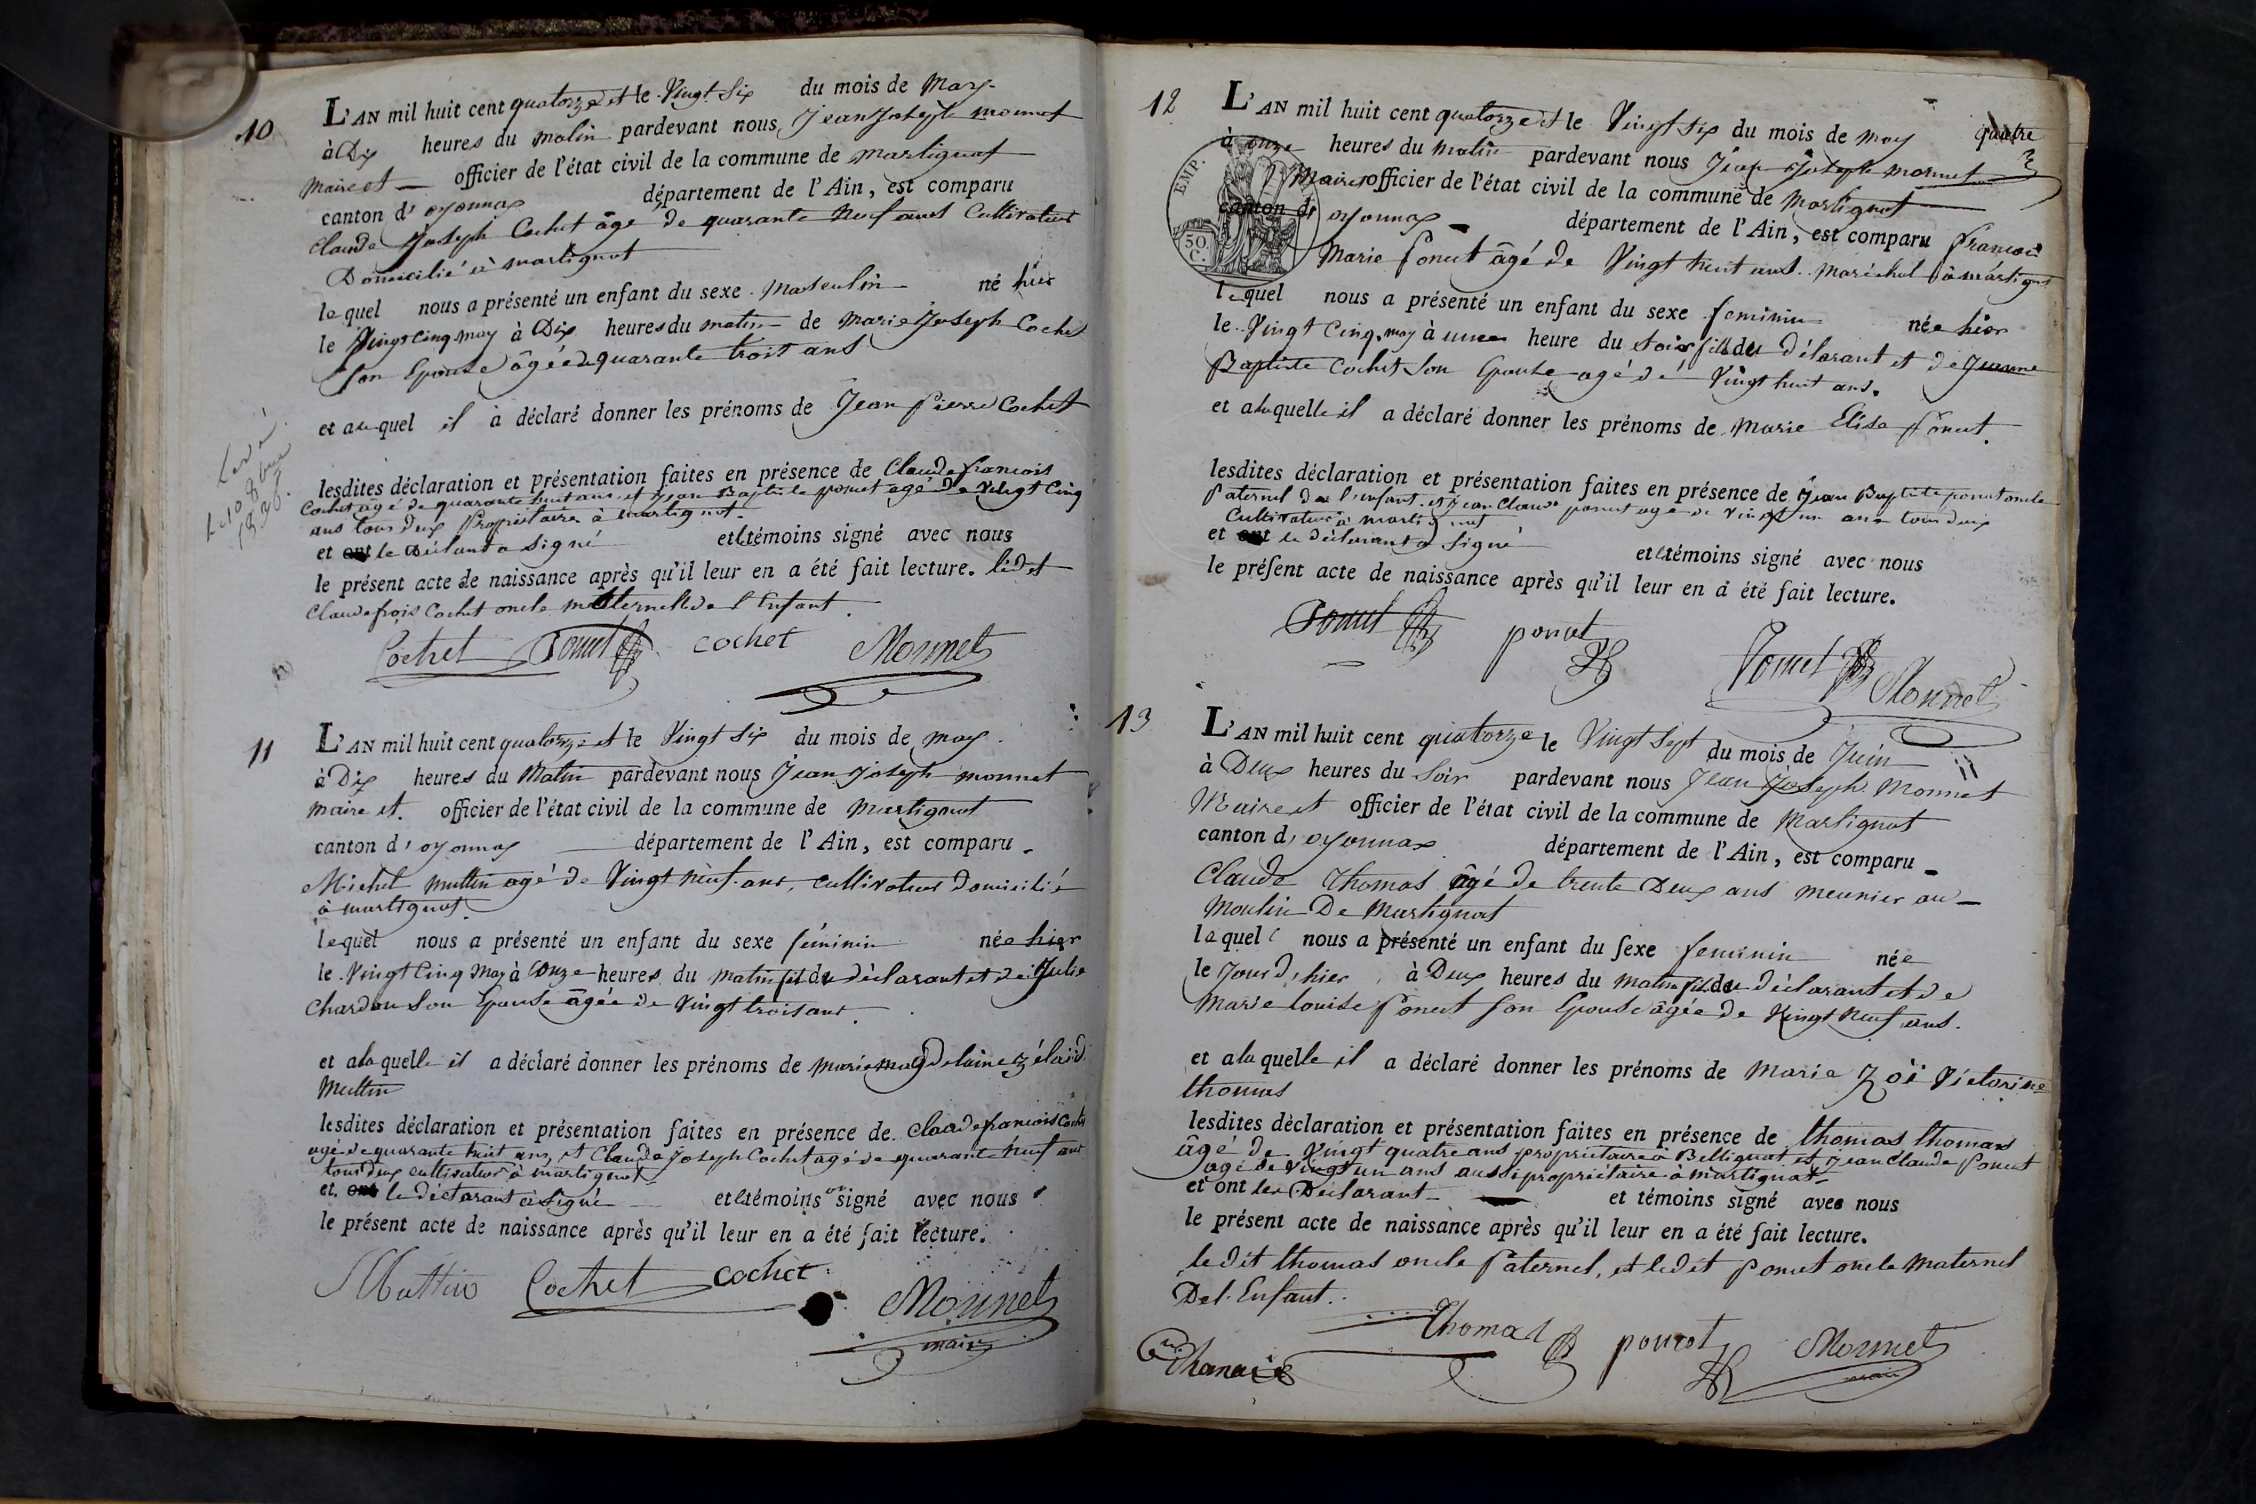 10
L'AN mil huit cent quatorze et le Vingt Six du mois de May
à Dix heures du matin pardevant nous Jean Joseph monnet
maire et officier de l'état civil de la commune de martignat
canton d' oyonnax département de l'Ain, est comparu
Claude Joseph Cochet âgé de quarante Neuf ans Cultivateur
Domicilié à martignat
lequel nous a présenté un enfant du sexe Masculin né hier
le Vingt Cinq may à Dix heures du matin de Marie Joseph Cochet
Son Epouse âgée de quarante trois ans
et auquel il a déclaré donner les prénoms de Jean Pierre Cochet
lesdites déclaration et présentation faites en présence de Claude françois
Cochet âgé de quarante huit ans et Jean Baptiste poncet agé de Vingt Cinq
ans tous deux Propriétaires à martignat
et ont le déclarant a Signé et les témoins signé avec nous
le présent acte de naissance après qu'il leur en a été fait lecture. ledet
Claude frois Cochet oncle maternelle de l'Enfant.
Cochet Poncet cochet Monnet
Levé
le 10 8bre
1836.
11
L'AN mil huit cent quatorze et le Vingt Six du mois de may
à Dix heures du Matin pardevant nous Jean Joseph monnet
maire et officier de l'état civil de la commune de martignat
canton d' oyonnax département de l'Ain, est comparu
Michel Muttin agé de Vingt Neuf ans, cultivateur Domicilié
à martignat
lequel nous a présenté un enfant du sexe féminin née hier
le Vingt Cinq May à onze heures du matin fil du déclarant et de Julie
Chardon Son Epouse âgée de Vingt trois ans.
et a la quelle il a déclaré donner les prénoms de marie magdelaine zélaïd
Muttin
lesdites déclaration et présentation faites en présence de claude francois Cochet
agé de quarante huit ans, et Claude Joseph Cochet agé de quarante Neuf ans
tous deux cultivateur à martignat
et ont le déclarant a signé et les témoins ont signé avec nous
le présent acte de naissance après qu'il leur en a été fait lecture.
Muttin Cochet cochet Monnet
maire
12
L'AN mil huit cent quatorze et le Vingt Six du mois de may quatre
à onze heures du matin pardevant nous Jean Joseph monnet
Maire officier de l'état civil de la commune de Martignat
canton d' oyonnax département de l'Ain, est comparu françois
EMP.
50.
C.
Marie Poncet âgé de Vingt huit ans Maréchal à martignat
lequel nous a présenté un enfant du sexe feminin née hier
le Vingt Cinq may à une heure du soir fille du déclarant et de Jeanne
Baptiste Cochet Son Epouse agé de Vingt huit ans.
et a la quelle il a déclaré donner les prénoms de Marie Elisa Poncet.
lesdites déclaration et présentation faites en présence de Jean Baptiste poncet oncle
Paternel de l'enfant et Jean Claude poncet agé de vingt un ans tous deux
Cultivateur à martignat
et ont le déclarant a Signé et les témoins signé avec nous
le présent acte de naissance après qu'il leur en a été fait lecture.
Poncet poncet Poncet Monnet
13
L'AN mil huit cent quatorze le Vingt Sept du mois de Juin
à Deux heures du Soir pardevant nous Jean Joseph Monnet
Maire et officier de l'état civil de la commune de Martignat
canton d' oyonnax département de l'Ain, est comparu
Claude Thomas âgé de trente Deux ans meunier au
Moulin De Martignat
lequel nous a présenté un enfant du sexe feminin née
le Jour d'hier à Deux heures du matin fil du déclarant et de
Marie Louise Poncet Son Epouse âgée de Vingt Neuf ans.
et a la quelle il a déclaré donner les prénoms de Marie Zoé Victorine
thomas
lesdites déclaration et présentation faites en présence de thomas thomas
âgé de Vingt quatre ans propriétaire à Bellignat et Jean Claude Poncet
agé de Vingt un ans aussi propriétaire à martignat
et ont les Déclarant et témoins signé avec nous
le présent acte de naissance après qu'il leur en a été fait lecture.
le dit thomas oncle Paternel, et le dit Poncet oncle Maternel
De l'Enfant.
Thomas poncet Monnet
maire